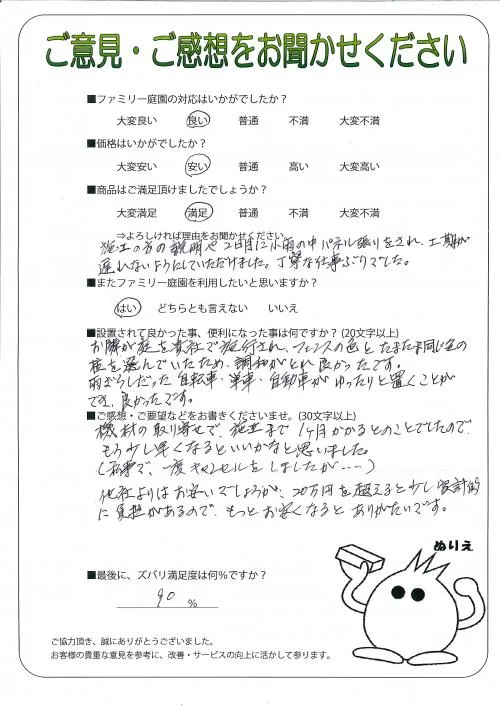 ご意見・ご感想をお聞かせください
■ファミリー庭園の対応はいかがでしたか？
大変良い 良い 普通 不満 大変不満
■価格はいかがでしたか？
大変安い 安い 普通 高い 大変高い
■商品はご満足頂けましたでしょうか？
大変満足 満足 普通 不満 大変不満
⇒よろしければ理由をお聞かせください
施工の方の説明や2日目に小雨の中パネル張りをされ、工期が
遅れないようにしていただけました。丁寧な仕事ぶりでした。
■またファミリー庭園を利用したいと思いますか？
はい どちらとも言えない いいえ
■設置されて良かった事、便利になった事は何ですか？(20文字以上)
お隣が庭を貴社で施行され、フェンスの色とたまたま同じ色の
柱を選んでいたため、調和がとれ良かったです。
雨ざらしだった自転車・単車・自動車がゆったりと置くことが
でき、良かったです。
■ご感想・ご要望などをお書きくださいませ。(30文字以上)
機材の取り寄せで、施工まで1ヶ月かかるとのことでしたので、
もう少し早くなるといいかなと思いました。
(私事で、一度キャンセルをしましたが……)
他社よりはお安いでしょうが、20万円を超えると少し家計的
に負担があるので、もっとお安くなるとありがたいです。
ぬりえ
■最後に、ズバリ満足度は何%ですか？
90 %
ご協力頂き、誠にありがとうございました。
お客様の貴重な意見を参考に、改善・サービスの向上に活かして参ります。